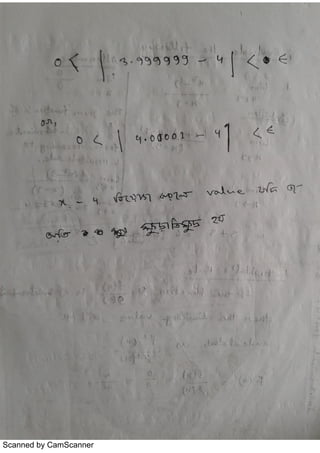 0 < | 3.999999 - 4 | < ∈
or,
0 < | 4.00001 - 4 | < ∈
x - 4 বিয়োগ করলে value যদি
অতি ক্ষুদ্রাতিক্ষুদ্র হয়
Scanned by CamScanner